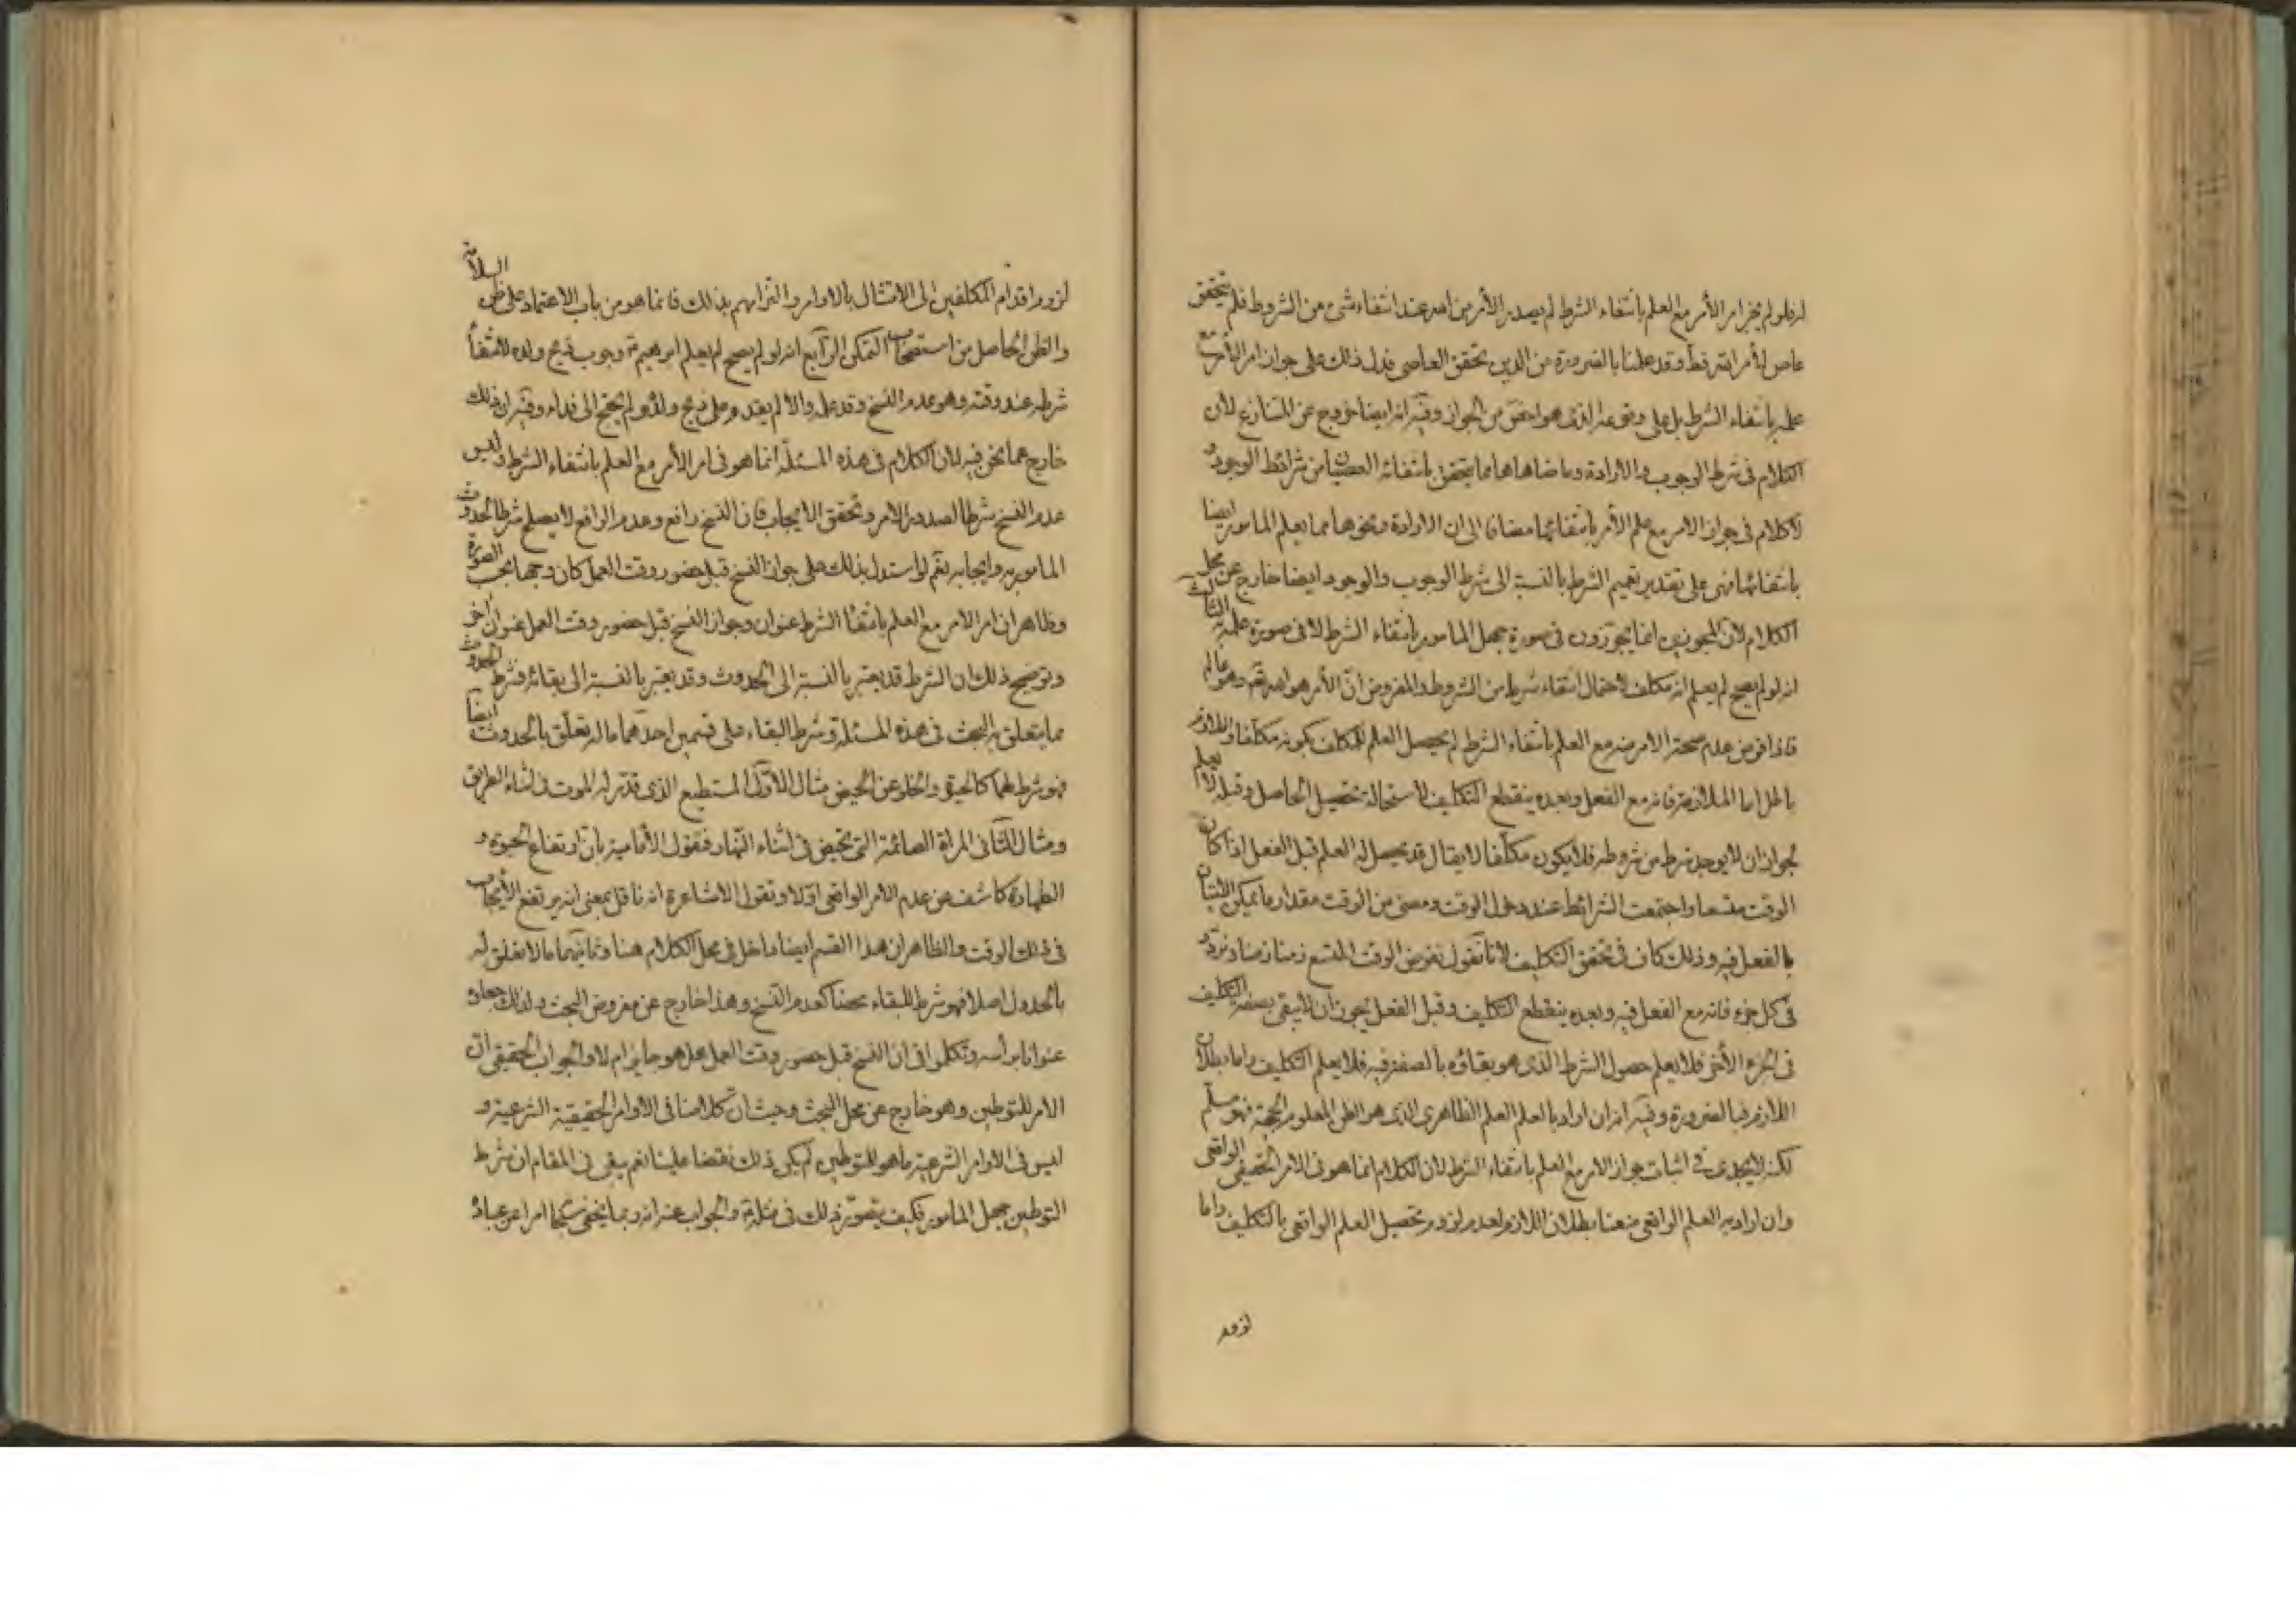 له فلو لم يجز امر الأمر مع العلم بانتفاء الشرط لم يصدر الأمر من احد عند انتفاء شئ من الشروط فلم يتحقق
عاص لأمر الله قط وقد علمنا بالضرورة من الدين تحقق العاصى فدل ذلك على جواز امر الأمر مع
علمه بانتفاء الشرط بل على وقوعه الذى هو اخص من الجواز وفيه انه ايضا خروج عن المتنازع لأن
الكلام فى شرط الوجوب والارادة وما ضاهاها مما يتحقق بانتفائه العصيان من شرائط الوجود و
لا كلام فى جواز الامر مع علم الأمر بانتفائها مضافا الى ان الارادة ونحوها مما يعلم المامور ايضا
بانتفائها فهى على تقدير تعميم الشرط بالنسبة الى شرط الوجوب والوجود ايضا خارج عن محل
الكلام لأن المجوزين انما يجوزون فى صورة جهل المامور بانتفاء الشرط لا فى صورة علمه الثالث
انه لو لم يصح لم يعلم انه مكلف لاحتمال انتفاء شرط من الشروط والمفروض ان الأمر هو الله تع وهو عالم
فاذا فرض عدم صحة الامر منه مع العلم بانتفاء الشرط لم يحصل العلم للمكلف بكونه مكلفا واللازم
باطل اما الملازمة فانه مع الفعل وبعده ينقطع التكليف لاستحالة تحصيل الحاصل وقبله لا يعلم
لجواز ان لا يوجد شرط من شروطه فلا يكون مكلفا لا يقال قد يحصل له العلم قبل الفعل اذا كان
الوقت متسعا واجتمعت الشرائط عند دخول الوقت ومضى من الوقت مقدار ما يمكن الاتيان
بالفعل فيه وذلك كاف فى تحقق التكليف لانا نقول نفرض الوقت المتسع زمنا زمنا ونردد
فى كل جزء فانه مع الفعل فيه وبعده ينقطع التكليف وقبل الفعل يجوز ان لا يبقى بصفة التكليف
فى الجزء الأخر فلا يعلم حصول الشرط الذى هو بقاؤه بالصفة فيه فلا يعلم التكليف واما بطلان
اللازم فبالضرورة وفيه انه ان اراد بالعلم العلم الظاهرى الذى هو الظن المعلوم الحجية فهو مسلم
لكنه لا يجدى فى اثبات جواز الامر مع العلم بانتفاء الشرط لان الكلام انما هو فى الامر الحقيقى الواقعى
وان اراد به العلم الواقعى منعنا بطلان اللازم لعدم لزوم تحصيل العلم الواقعى بالتكليف واما
لزوم
لزوم اقدام المكلفين الى الامتثال بالاوامر والتزامهم بذلك فانما هو من باب الاعتماد على ظن السلامة
والظن الحاصل من استصحاب التمكن الرابع انه لو لم يصح لم يعلم ابرهيم ع وجوب ذبح ولده لانتفاء
شرطه عند وقته وهو عدم النسخ وقد علمه والا لم يقدم على ذبح ولده ولم يحتج الى فداء وفيه ان ذلك
خارج عما نحن فيه لان الكلام فى هذه المسئلة انما هو فى امر الأمر مع العلم بانتفاء الشرط وليس
عدم النسخ شرطا لصدور الامر وتحقق الايجاب فان النسخ رافع وعدم الرافع لا يصلح شرطا لحدوث
المامور به وايجابه نعم لو استدل بذلك على جواز النسخ قبل حضور وقت العمل كان وجها بحسب الصورة
وظاهر ان امر الامر مع العلم بانتفاء الشرط عنوان وجواز النسخ قبل حضور وقت العمل عنوان اخر
وتوضيح ذلك ان الشرط قد يعتبر بالنسبة الى الحدوث وقد يعتبر بالنسبة الى بقائه فشرط الحدوث
مما يتعلق به البحث فى هذه المسئلة وشرط البقاء على قسمين احدهما ما له تعلق بالحدوث ايضا
فهو شرط لهما كالحيوة والخلو عن الحيض مثال الاول المستطيع الذى قدر له الموت فى اثناء الطريق
ومثال الثانى المراة الصائمة التى تحيض فى اثناء النهار فنقول الأمامية بان ارتفاع الحيوة و
الطهارة كاشف عن عدم الامر الواقعى اولا وتقول الاشاعرة انه ناقل بمعنى انه يرتفع الأيجاب
فى ذلك الوقت والظاهر ان هذا القسم ايضا داخل فى محل الكلام هنا وثانيهما ما لا تعلق له
بالحدوث اصلا فهو شرط للبقاء محضا كعدم النسخ وهذا خارج عن مفروض البحث ولذلك جعلوا
عنوانا براسه وتكلموا فى ان النسخ قبل حضور وقت العمل هل هو جايز ام لا والجواب الحقيقى ان
الامر للتوطين وهو خارج عن محل البحث وحيث ان كلامنا فى الاوامر الحقيقية الشرعية و
ليس فى الاوامر الشرعية ما هو للتوطين لم يكن ذلك نقضا علينا نعم يبقى فى المقام ان شرط
التوطين جهل المامور فكيف يتصور ذلك فى مثله والجواب عنه انه ربما يخفى حكما امرا عن عباده